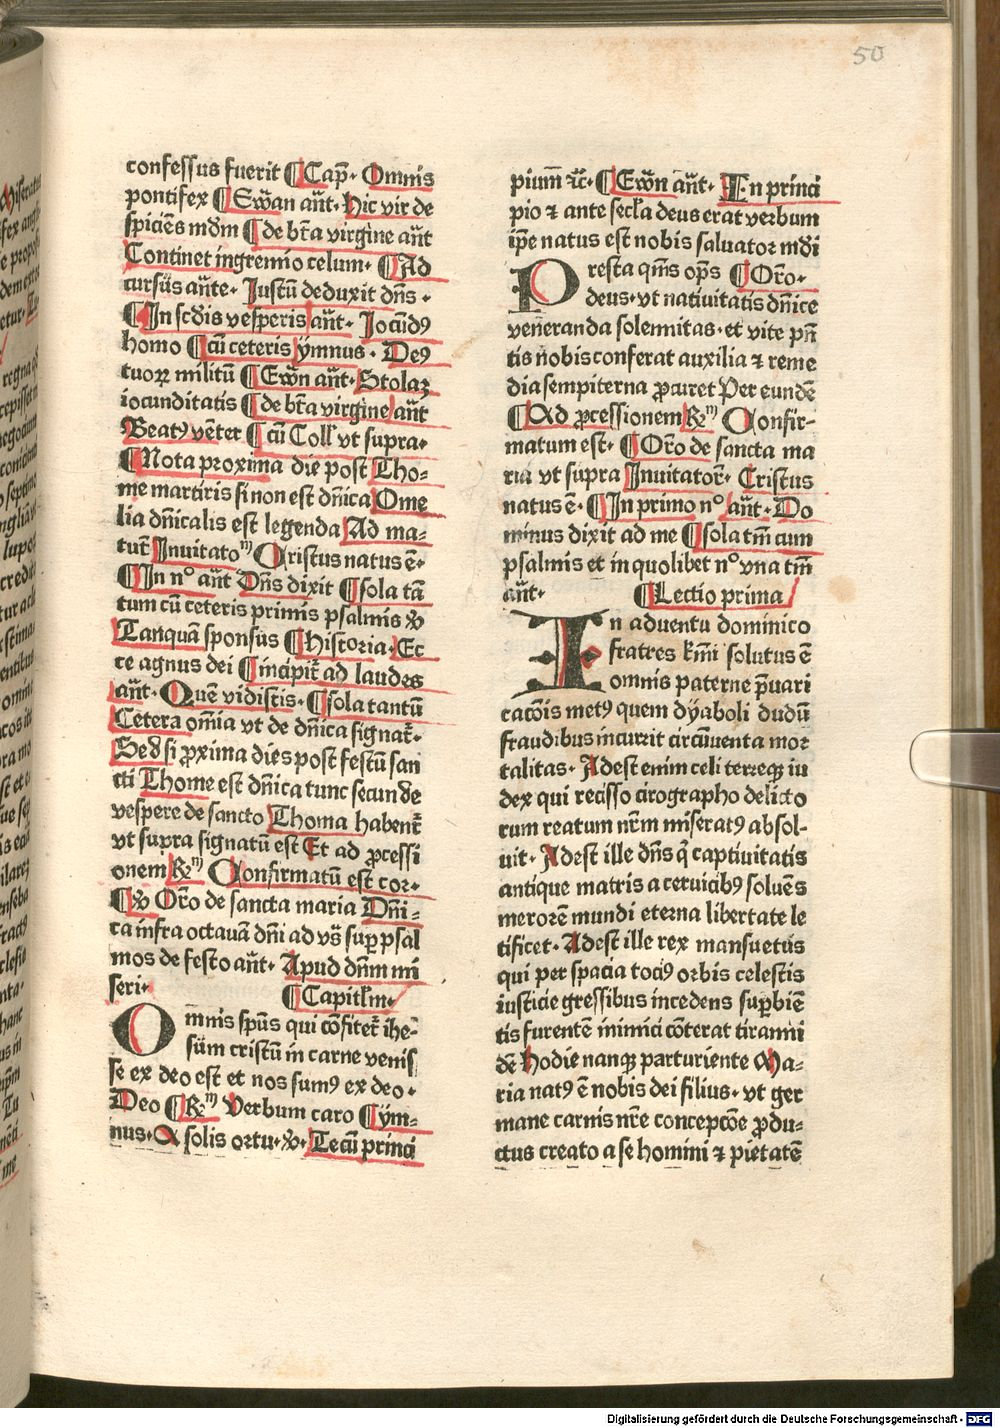 50
confessus fuerit ¶ Cap̄. Omnis
pontifex ¶ Ewan añt. Hic vir de
spiciēs mdm ¶ de bt̄a virgine añt
Continet ingremio celum. ¶ Ad
cursus añte. Justū deduxit dn̄s.
¶ In scdis vesperis añt. Jocūdꝰ
homo ¶ cū ceteris ymnus. Deꝰ
tuoꝝ militū ¶ Ewn̄ añt. Stolaz
iocunditatis ¶ de bt̄a virgine añt
Beatꝰ vēter ¶ cū Coll̄ vt supra.
¶ Nota proxima die post Tho-
me martiris si non est dn̄ica Ome
lia dn̄icalis est legenda Ad ma-
tut̄ Inuitatoᵐ Cristus natus ē.
¶ In nᵒ añt Dn̄s dixit ¶ sola tā
tum cū ceteris primis psalmis ⁊c
Tanquā sponsus ¶ Historia. Ec
ce agnus dei ¶ incipit̄ ad laudes
añt. Quē vidistis. ¶ sola tantū
Cetera om̄ia vt de dn̄ica signat̄.
Sed si ꝓxima dies post festū san
cti Thome est dn̄ica tunc secunde
vespere de sancto Thoma habent̄
vt supra signatū est Et ad ꝓcessi
onem Rᵐ Confirmatū est cor.
¶ ⁊c Or̄o de sancta maria Dn̄i-
ca infra octauā dn̄i ad vs̄ suꝑ psal
mos de festo añt. Apud dn̄m mi
seri.
¶ Capitl̄m.
Omnis spūs qui cōfitet̄ ihe-
sūm cristū in carne venis
se ex deo est et nos sumꝰ ex deo.
Deo ¶ Rᵐ Verbum caro ¶ ym-
nus. A solis ortu. ⁊c. Tecū princi
pium̄ ⁊c̄. ¶ Ewn̄ añt. In princi
pio ⁊ ante secl̄a deus erat verbum
ip̄e natus est nobis saluator mdi
Presta qm̄s op̄s ¶ Or̄o.
deus. vt natiuitatis dn̄ice
veneranda solennitas. et vite pn̄
tis nobis conferat auxilia ⁊ reme
dia sempiterna ꝓcuret Per eundē
¶ Ad ꝓcessionem Rᵐ Confir-
matum est. ¶ Or̄o de sancta ma
ria vt supra Inuitator̄. Cristus
natus ē. ¶ In primo nᵒ añt. Do
minus dixit ad me ¶ sola tm̄ cum
psalmis et in quolibet nᵒ vna tm̄
añt.
¶ Lectio prima
In aduentu dominico
fratres kr̄mi solutus ē
omnis paterne p̄uari
cacōis metꝰ quem dyaboli dudū
fraudibus incurrit circūuenta mor
talitas. Adest enim celi terreqꝫ iu
dex qui recisso cirographo delicto
rum reatum nr̄m miseratꝰ absol-
uit. Adest ille dn̄s q̄ captiuitatis
antique matris a ceruicibꝰ soluēs
merorē mundi eterna libertate le
tificet. Adest ille rex mansuetus
qui per spacia tociꝰ orbis celestis
iusticie gressibus incedens suꝑbiē
tis furentē inimici cōterat tiranni
dē Hodie nanqꝫ parturiente Ma-
ria natꝰ ē nobis dei filius. vt ger
mane carnis nr̄e concepcōe ꝓdu-
ctus creato a se homini ⁊ pietatē
Digitalisierung gefördert durch die Deutsche Forschungsgemeinschaft - DFG